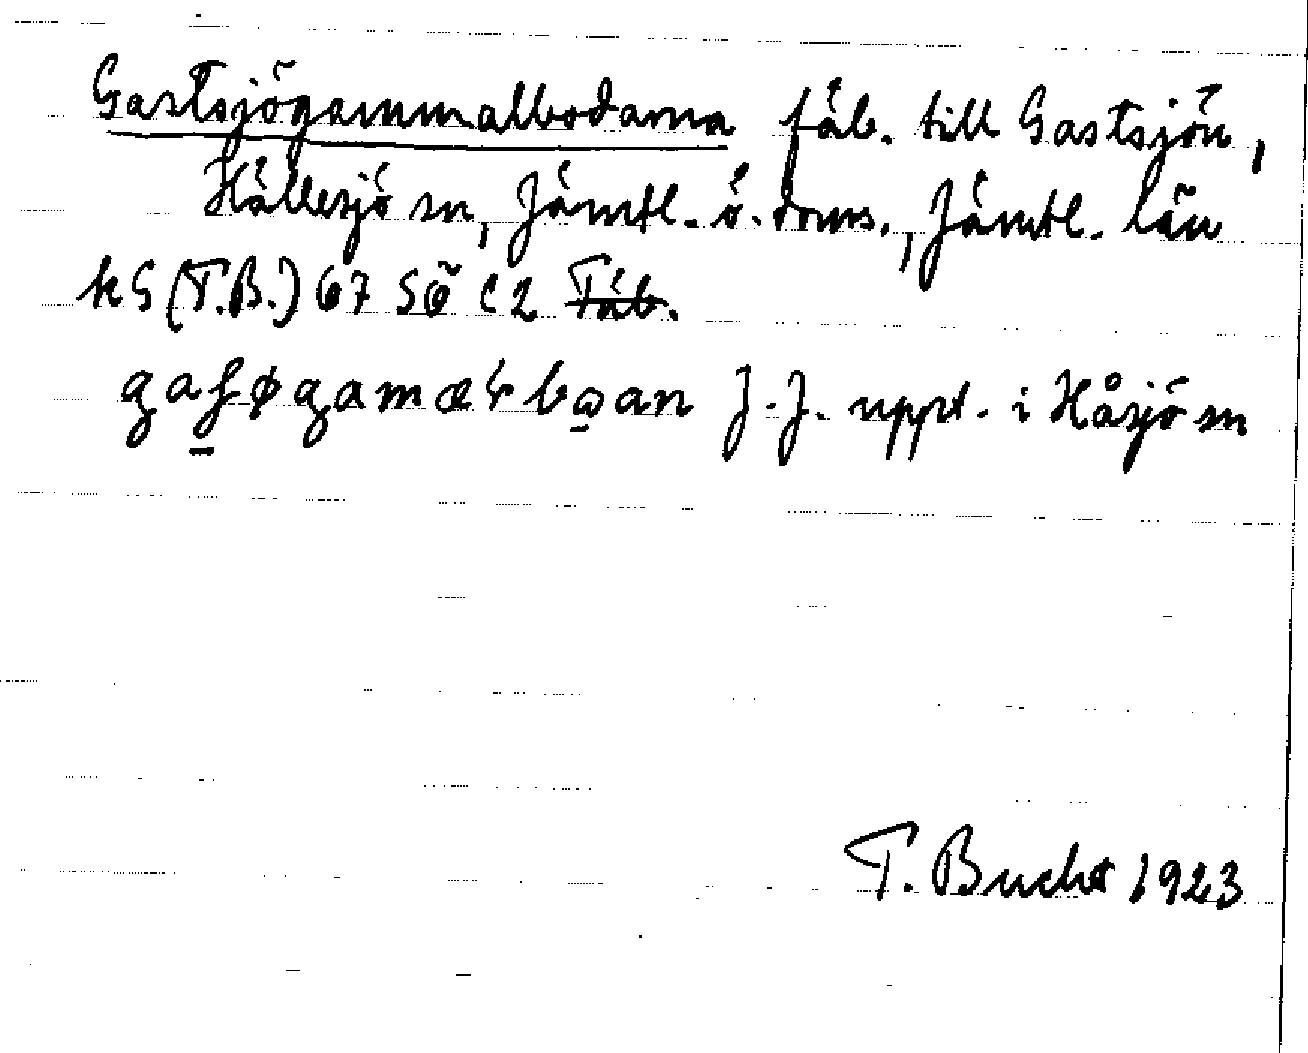 Gastsjögammalbodarna fäb. till Gastsjön,
Hällesjö sn, Jämtl. ö. doms., Jämtl. län
k G (T.B.) 67 SÖ c 2 Fäb.
J. J. uppt. i Håsjö sn
T. Bucht 1923